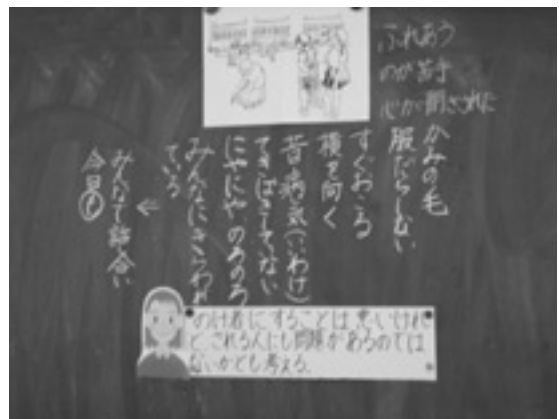 ふれあう
のが苦手
心が閉ざされた
かみの毛
服だらしない
すぐおこる
横を向く
昔病気(いいわけ)
てきぱきしてない
にやにや のろのろ
みんなにきらわれ
ている
↓
みんなで話合い
今日
のけ者にすることは悪いけれ
ど、される人にも問題があるのでは
ないかとも考える。